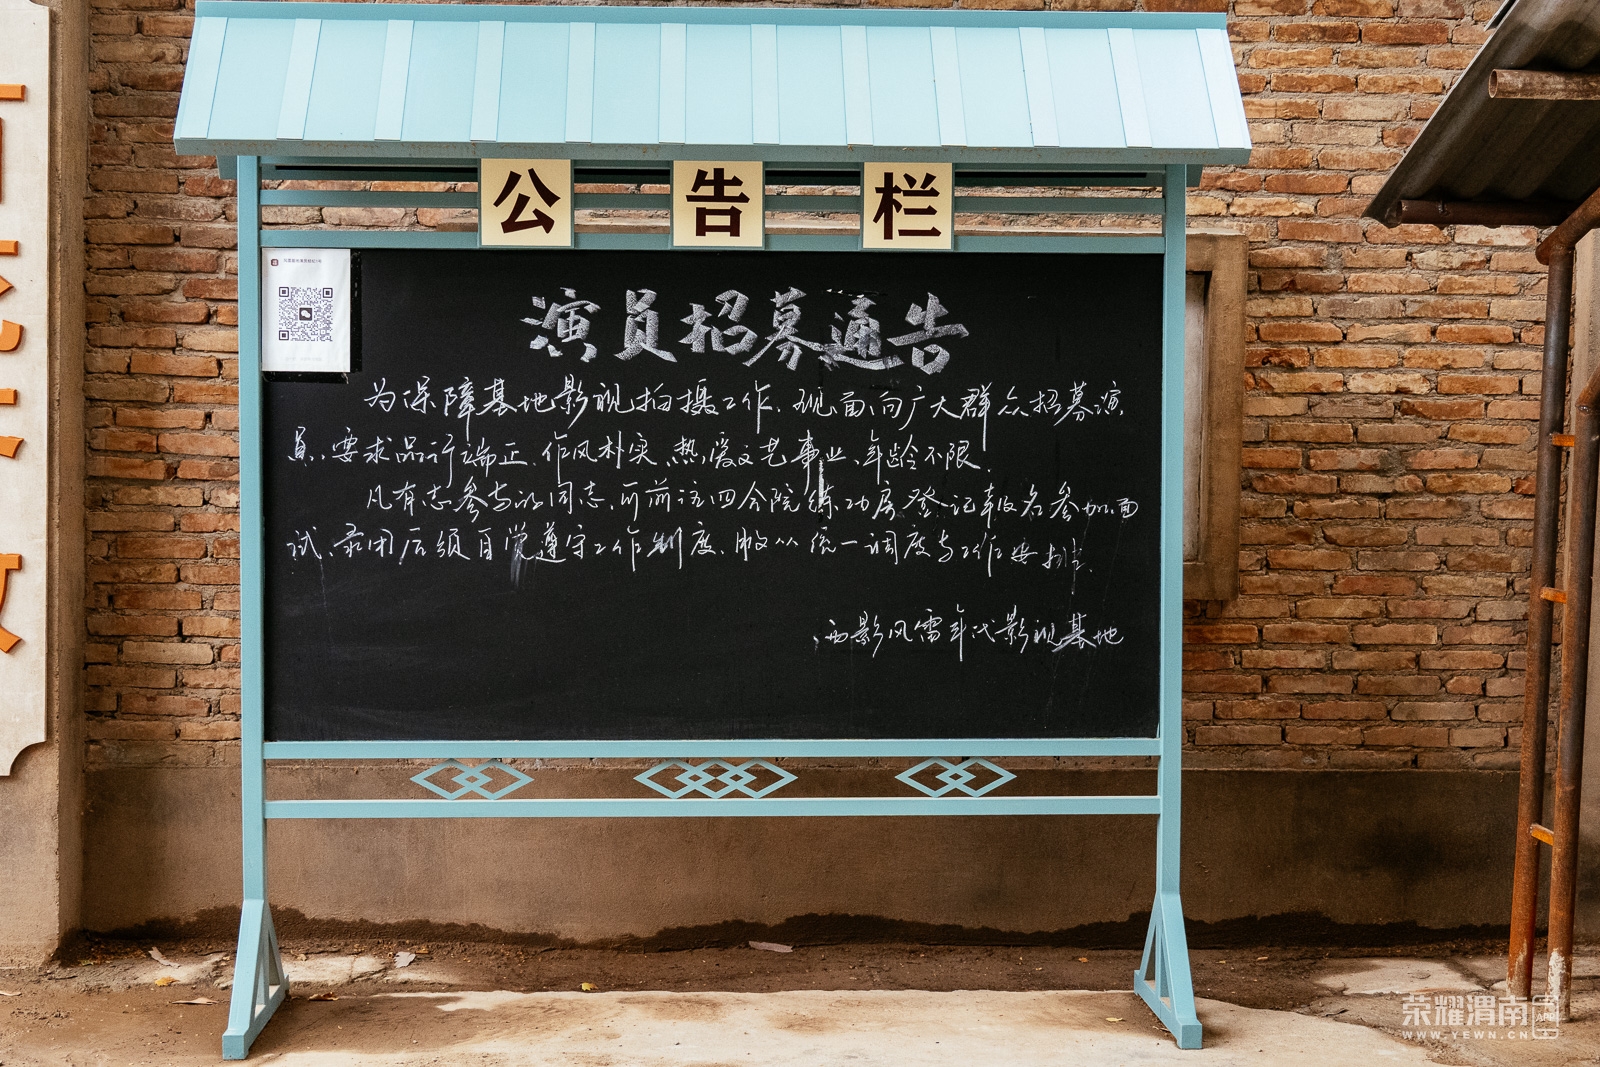 公告栏
演员招募通告
为保障基地影视拍摄工作,现面向广大群众招募演
员,要求品行端正、作风朴实、热爱文艺事业、年龄不限.
凡有志参与的同志,可前往四合院练功房登记报名参加面
试,录用后须自觉遵守工作制度,服从统一调度与工作安排.
西影风雷年代影视基地
荣耀渭南
APP
WWW.YEWN.CN